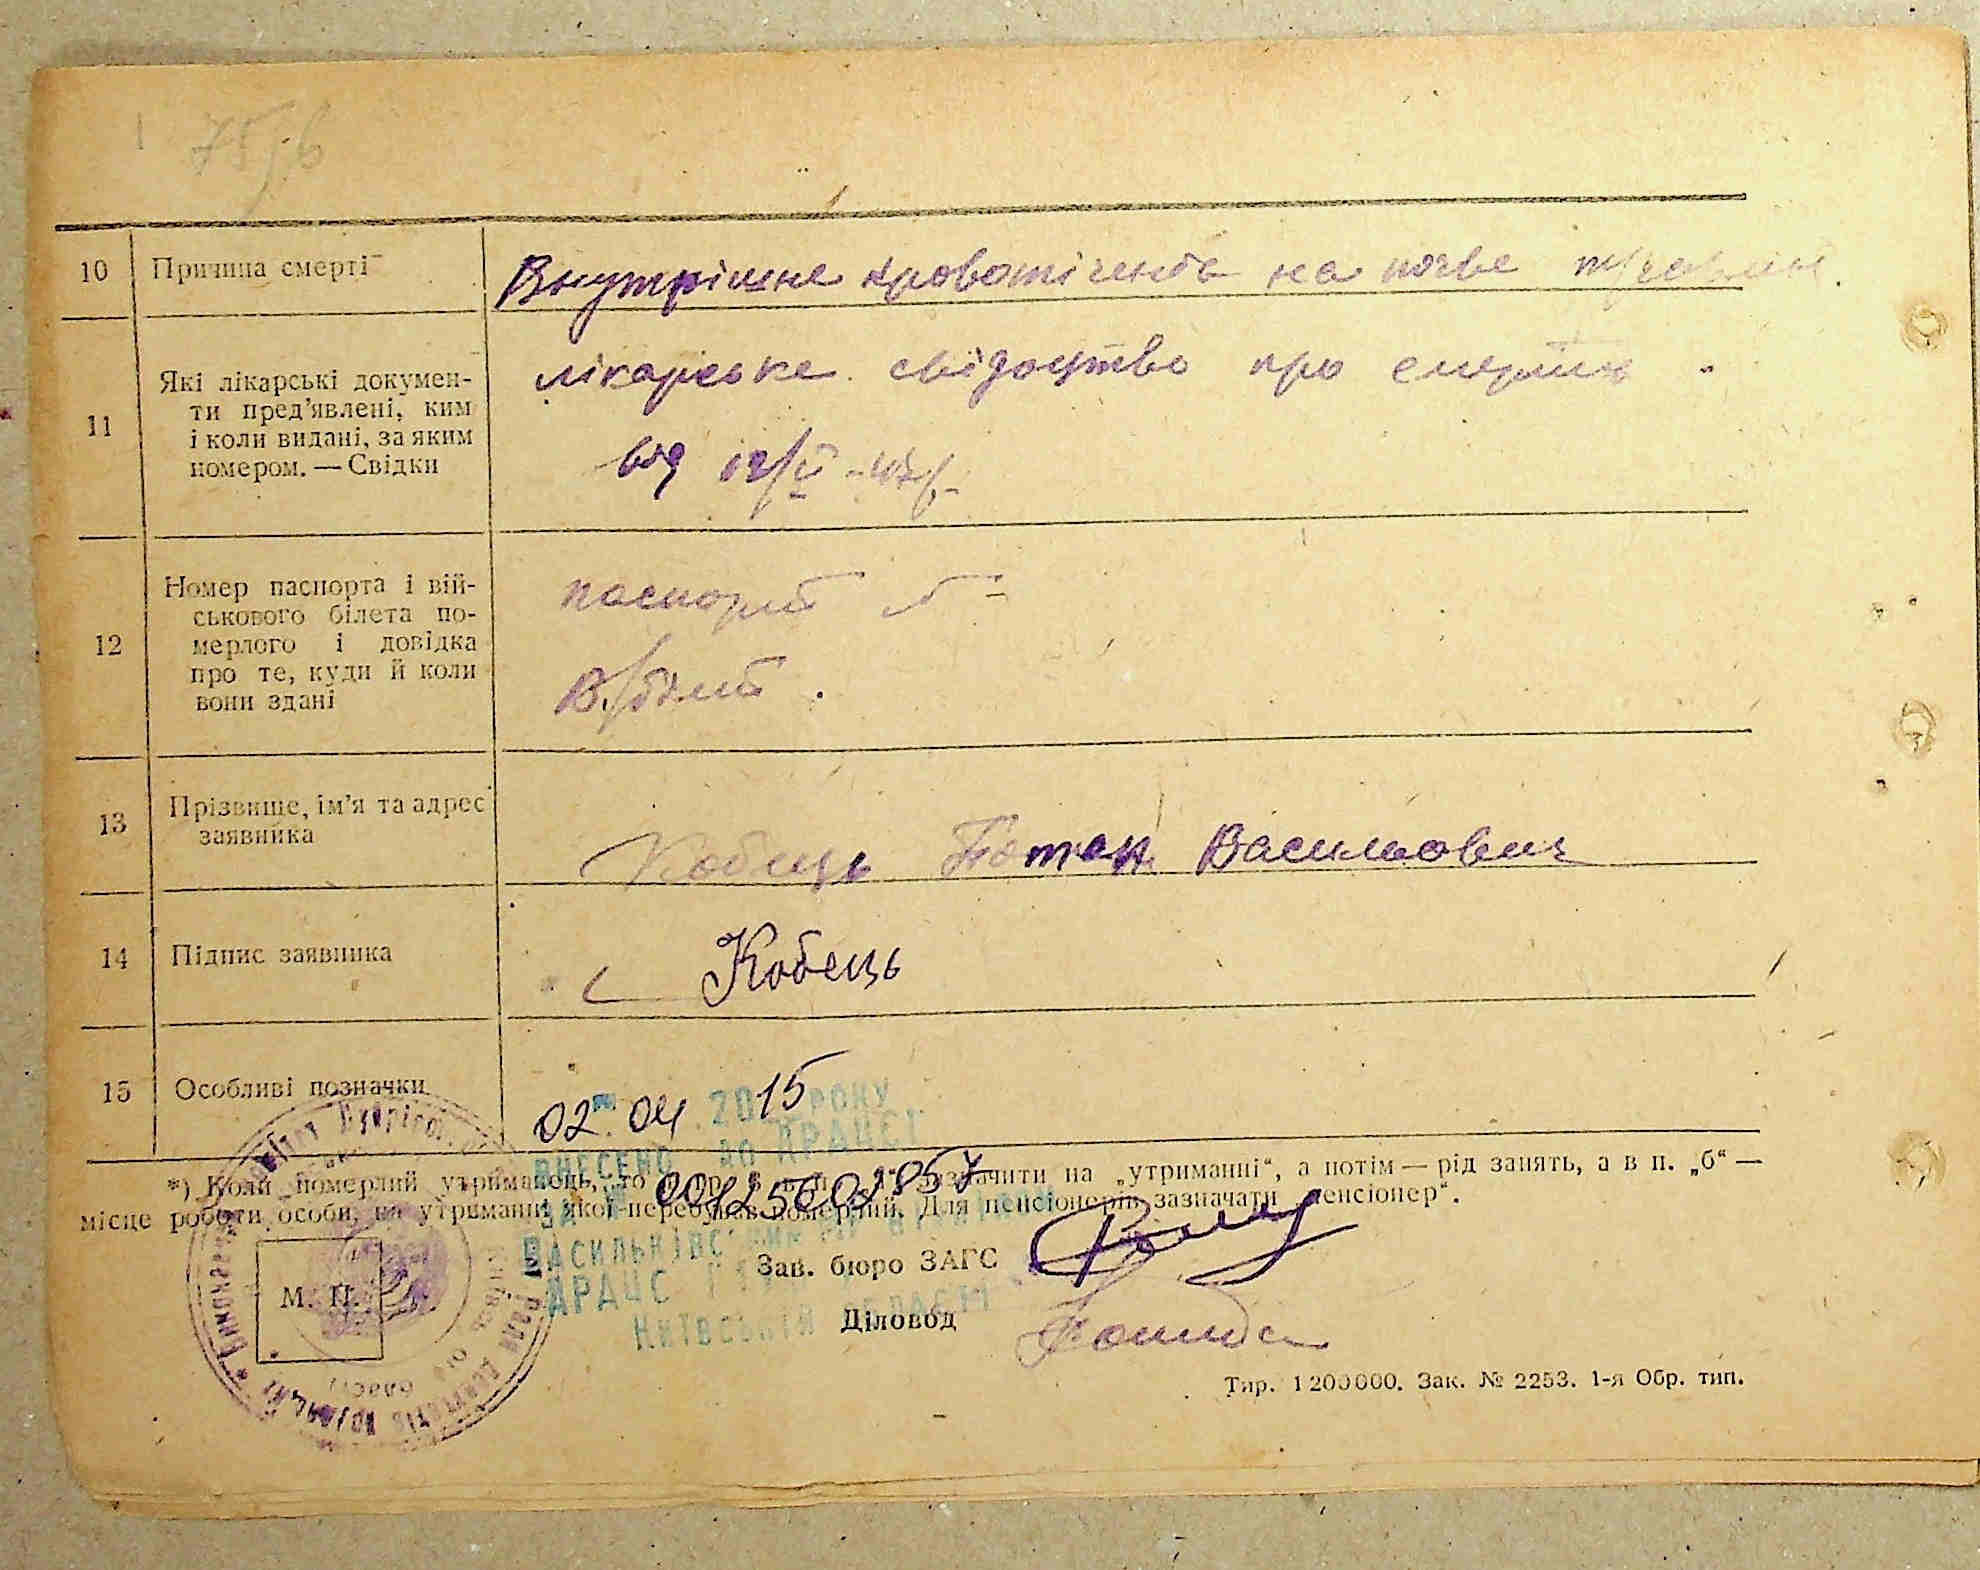 10 Причина смерті Внутрішне кровотіченья на почве
11 Які лікарські докумен-
ти пред’явлені, ким
і коли видані, за яким
номером. — Свідки
лікарське свідоцтво про смерть
від 12/V-47р.
12 Номер паспорта і вій-
ськового білета по-
мерлого і довідка
про те, куди й коли
вони здані
паспорт
В/білет.
13 Прізвище, ім’я та адрес
заявника
Кобець Потап Васильович
14 Підпис заявника Кобець
15 Особливі позначки
02. 04. 2015 РОКУ
ВНЕСЕНО ДО ДРАЦСГ
*) Коли померлий утриманець, то зазначити на „утриманні“, а потім — рід занять, а в п. „б“ —
00125602857
місце роботи особи, на утриманні якої перебував померлий. Для пенсіонерів зазначати „пенсіонер“.
ВАСИЛЬКІВСЬКИЙ
Зав. бюро ЗАГС
М. П.
КИЇВСЬКІЙ ОБЛАСТІ
Діловод
Тир. 1200000. Зак. № 2253. 1-я Обр. тип.